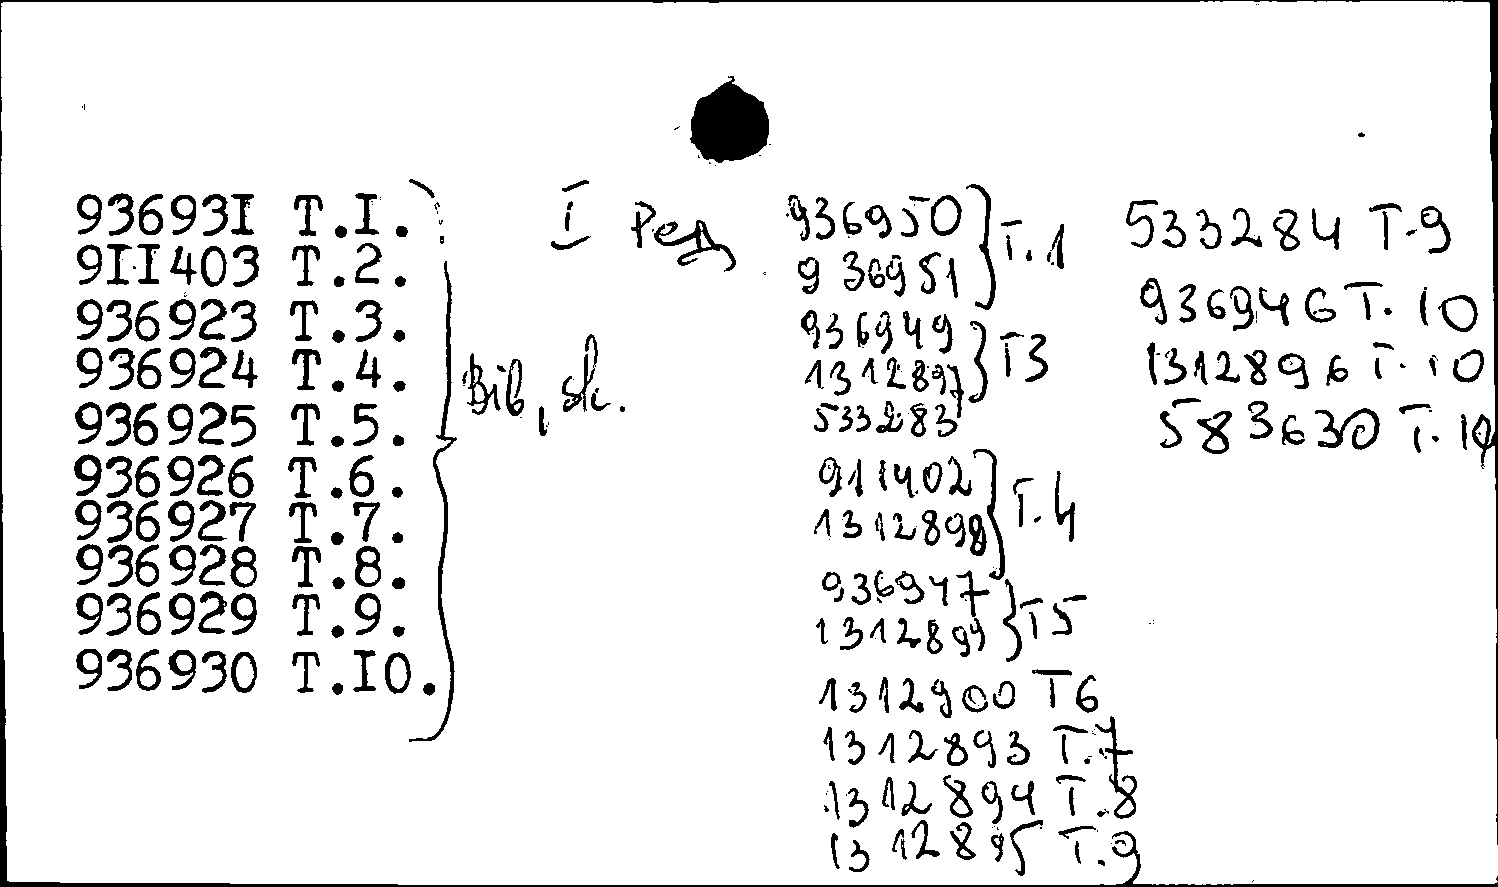 93693I Т.I.
9II403 Т.2.
936923 Т.3.
936924 Т.4.
936925 Т.5.
936926 Т.6.
936927 Т.7.
936928 Т.8.
936929 Т.9.
936930 Т.I0.
Bib, sk.
I Ред
936950
936951
Т.1
936949
1312897
Т3
533283
911402
1312898
Т.4
936947
1312899
Т5
1312900 Т6
1312893 Т.7
1312894 Т.8
1312895 Т.9
533284 Т-9
936946 Т.10
1312896 Т.10
583630 Т.10